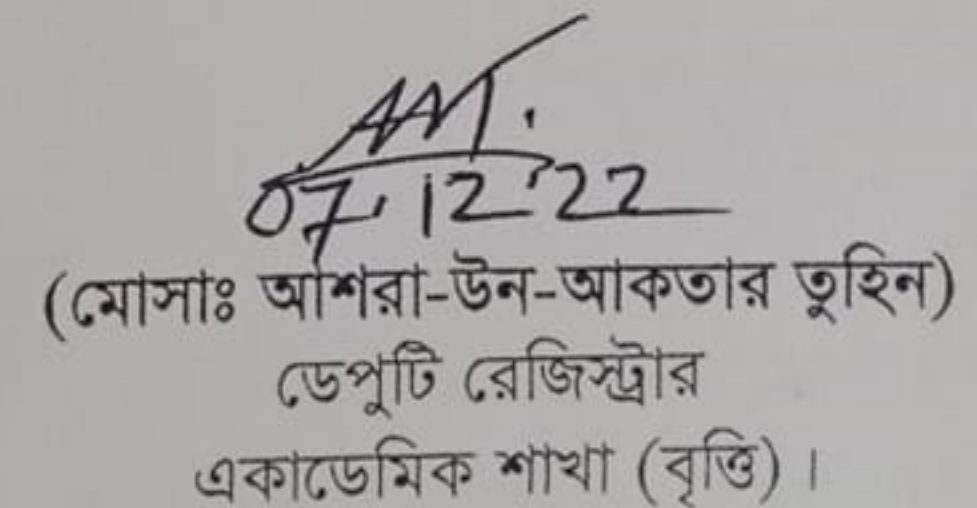 07.12.22
(মোসাঃ আশরা-উন-আকতার তুহিন)
ডেপুটি রেজিস্ট্রার
একাডেমিক শাখা (বৃত্তি) ।